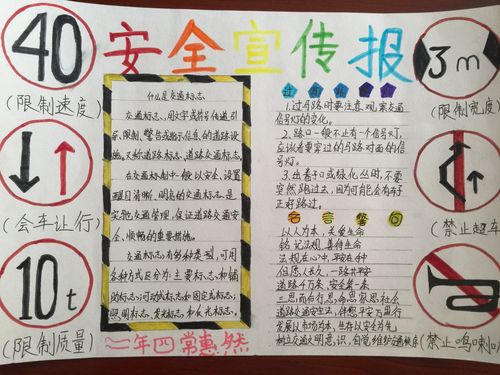 安全宣传报
40
(限制速度)
(会车让行)
10t
(限制质量)
什么是交通标志
交通标志,用文字或符号传递引
导、限制、警告或指示信息的道路设
施。又称道路标志、道路交通标志。
在交通标志中一般以安全、设置
醒目、清晰、明亮的交通标志是
实施交通管理,保证道路交通安
全、顺畅的重要措施。
交通标志有多种类型,可用
各种方式区分为:主要标志和辅
助标志;可动式标志和固定式标志;
照明标志、发光标志和反光标志。
1.过马路时要注意观察交通
信号灯的变化。
2、路口一般不止有一个信号灯,
应该看要穿过的马路对面的信
号灯。
3、出巷子口或绿化丛时,不要
突然跑过去,因为可能会有车子
正好路过。
名言警句
以人为本,关爱生命
铭记法规,善待生命
法规在心中,平安在手中
但愿人长久,一路共平安
道路千万条,安全第一条
三思而后行,思命思家思社会
道路交通安全法,伴您平安万里行
发展以市场为本,生存以安全为先
树立交通文明意识,自觉维护交通秩序
3m
(限制宽度)
(禁止超车
(禁止鸣喇叭
二年四 常惠然